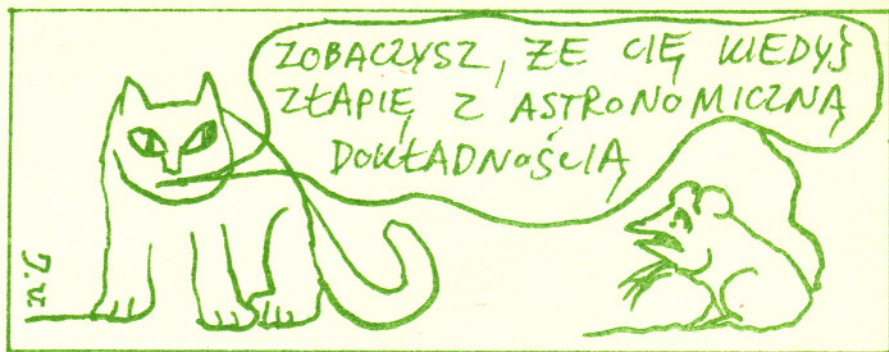 ZOBACZYSZ, ŻE CIĘ KIEDYŚ
ZŁAPIĘ Z ASTRONOMICZNĄ
DOKŁADNOŚCIĄ